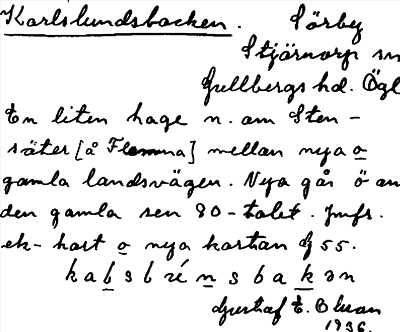 Karlslundsbacken. Sörby
Stjärnorp sn
Gullbergs hd. Ögl
En liten hage n. om Sten-
säter [å Flemma] mellan nya o
gamla landsvägen. Nya går ö om
den gamla sen 80-talet. Jmfr.
ek-kart o nya kartan G 55.
Gustaf E. Olsson
1936.